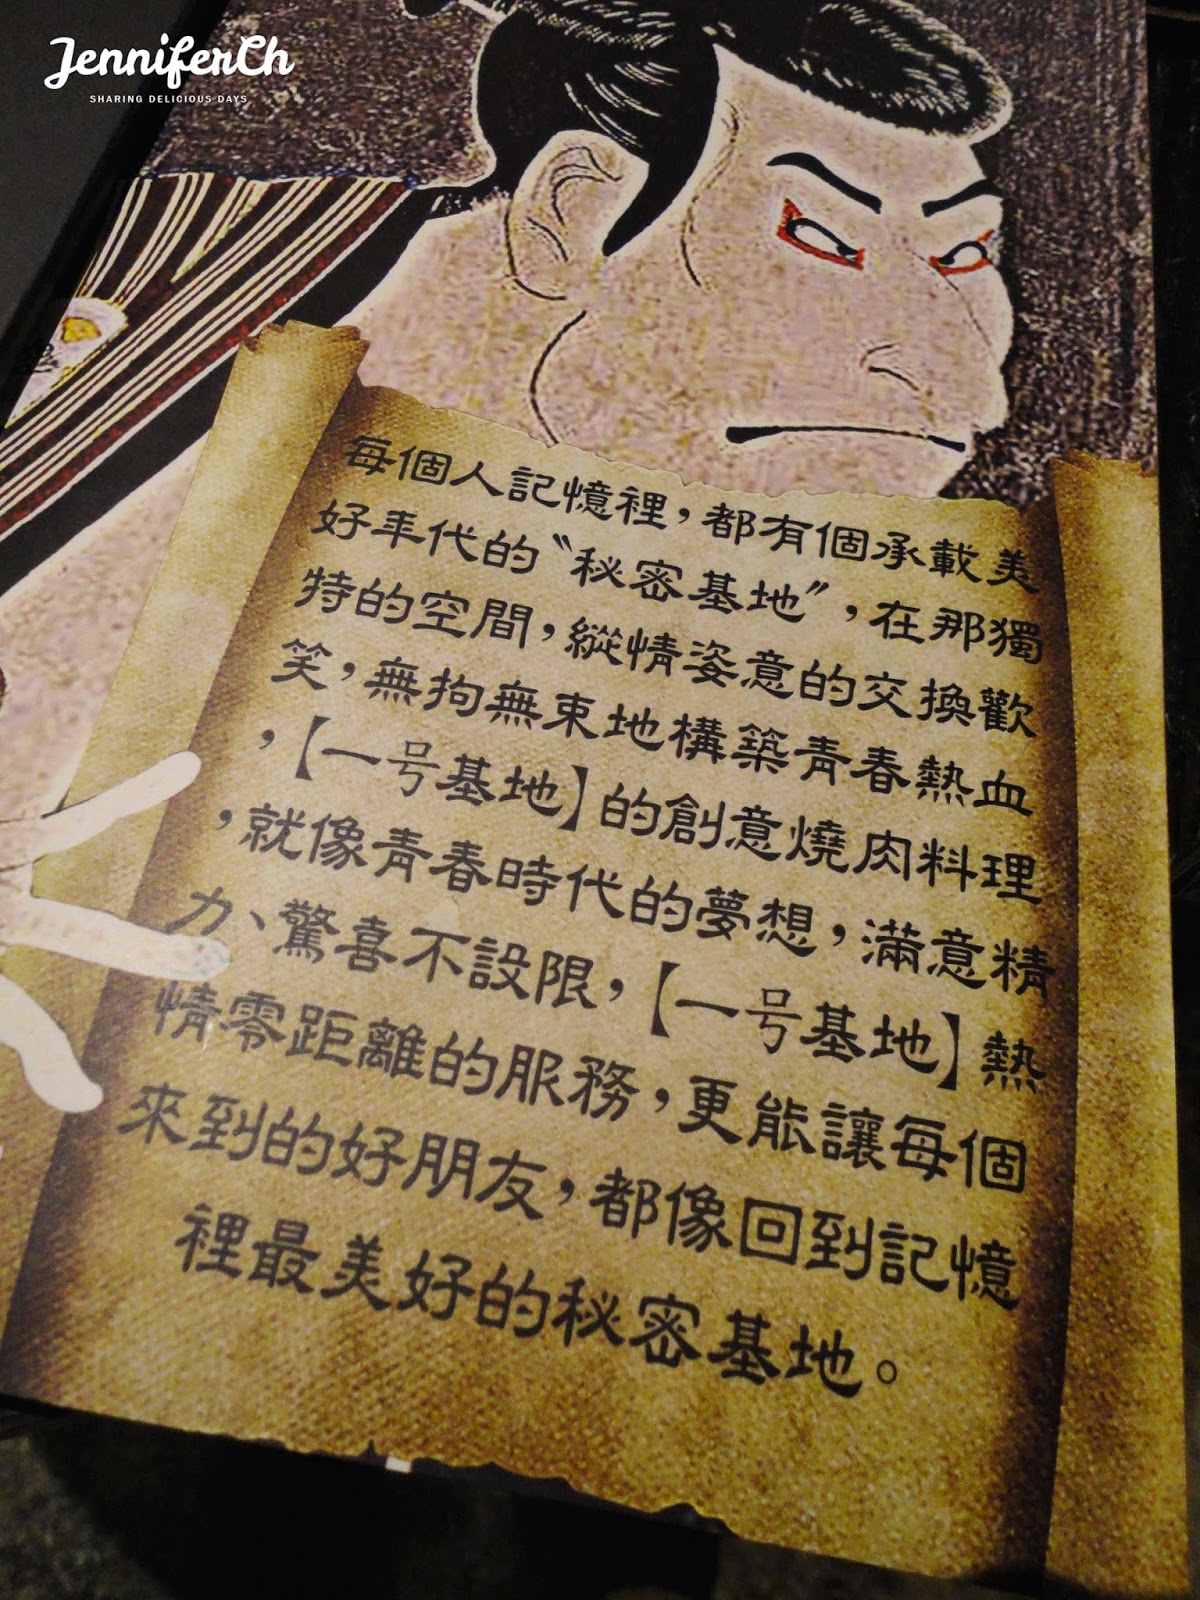 JenniferCh
SHARING DELICIOUS DAYS
每個人記憶裡，都有個承載美
好年代的〝秘密基地〞，在那獨
特的空間，縱情姿意的交換歡
笑，無拘無束地構築青春熱血
，【一号基地】的創意燒肉料理
，就像青春時代的夢想，滿意精
力、驚喜不設限，【一号基地】熱
情零距離的服務，更能讓每個
來到的好朋友，都像回到記憶
裡最美好的秘密基地。